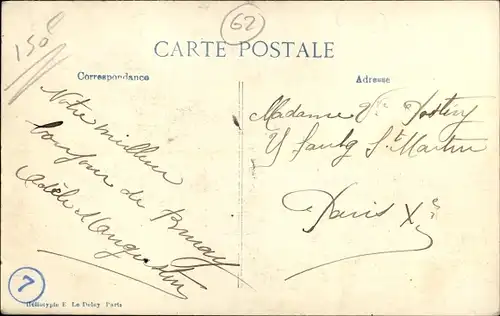 150f
62
CARTE POSTALE
Correspondance
Adresse
Notre meilleur
bonjour de Bruay
Adèle Mangustin
Madame Vve
faubg St Martin
Paris Xe
7
Héliotypie E Le Deley Paris